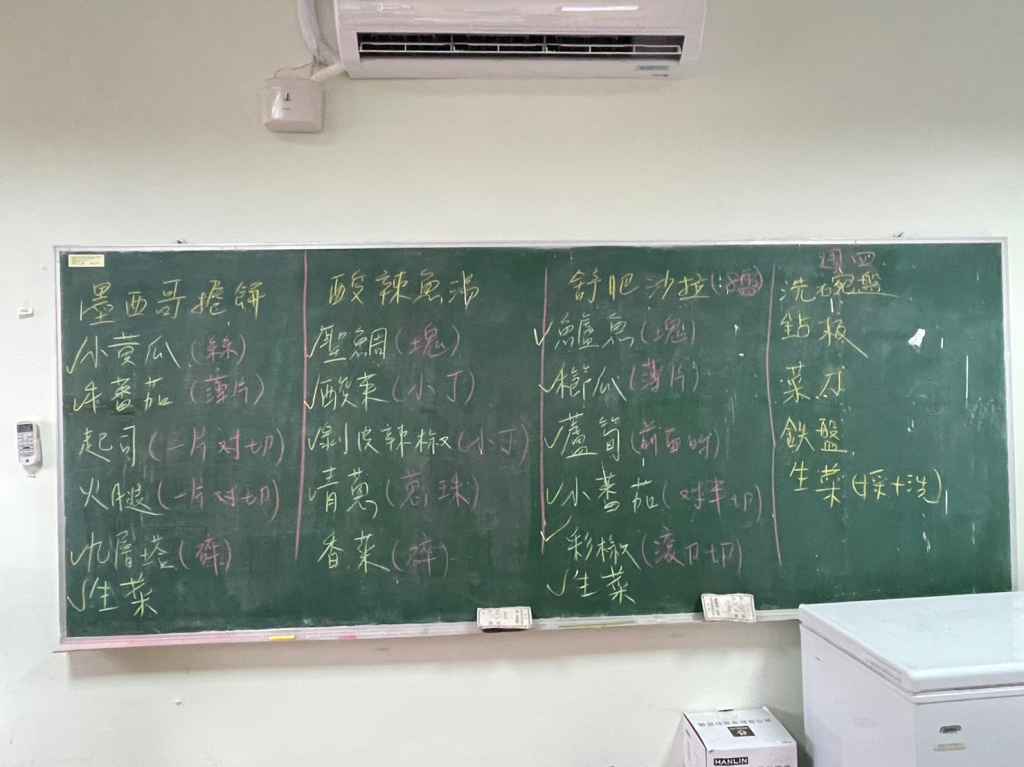 墨西哥捲餅
✓小黄瓜(絲)
✓牛蕃茄(薄片)
起司(二片对切)
火腿(一片对切)
✓九層塔(碎)
✓生菜
酸辣魚湯
✓鯛(塊)
✓酸菜(小丁)
✓剝皮辣椒(小丁)
青蔥(蔥珠)
香菜(碎)
舒肥沙拉
✓鱸魚(塊)
✓櫛瓜(薄片)
✓蘆筍
✓小蕃茄(对半切)
✓彩椒(滾刀切)
✓生菜
週四
洗碗盤
鉆板
菜刀
鉄盤
生菜(採+洗)
HANLIN